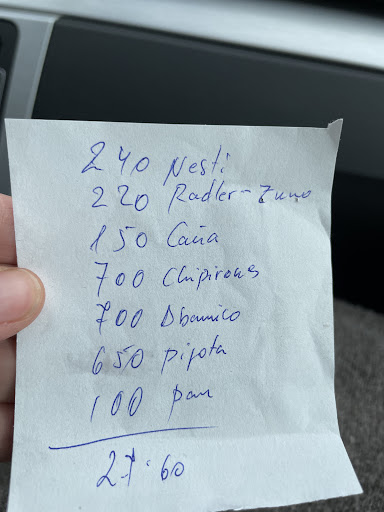 240 Nesti
220 Radler-Zumo
150 Caña
700 Chipirones
700 Abanico
650 pijota
100 pan
27.60